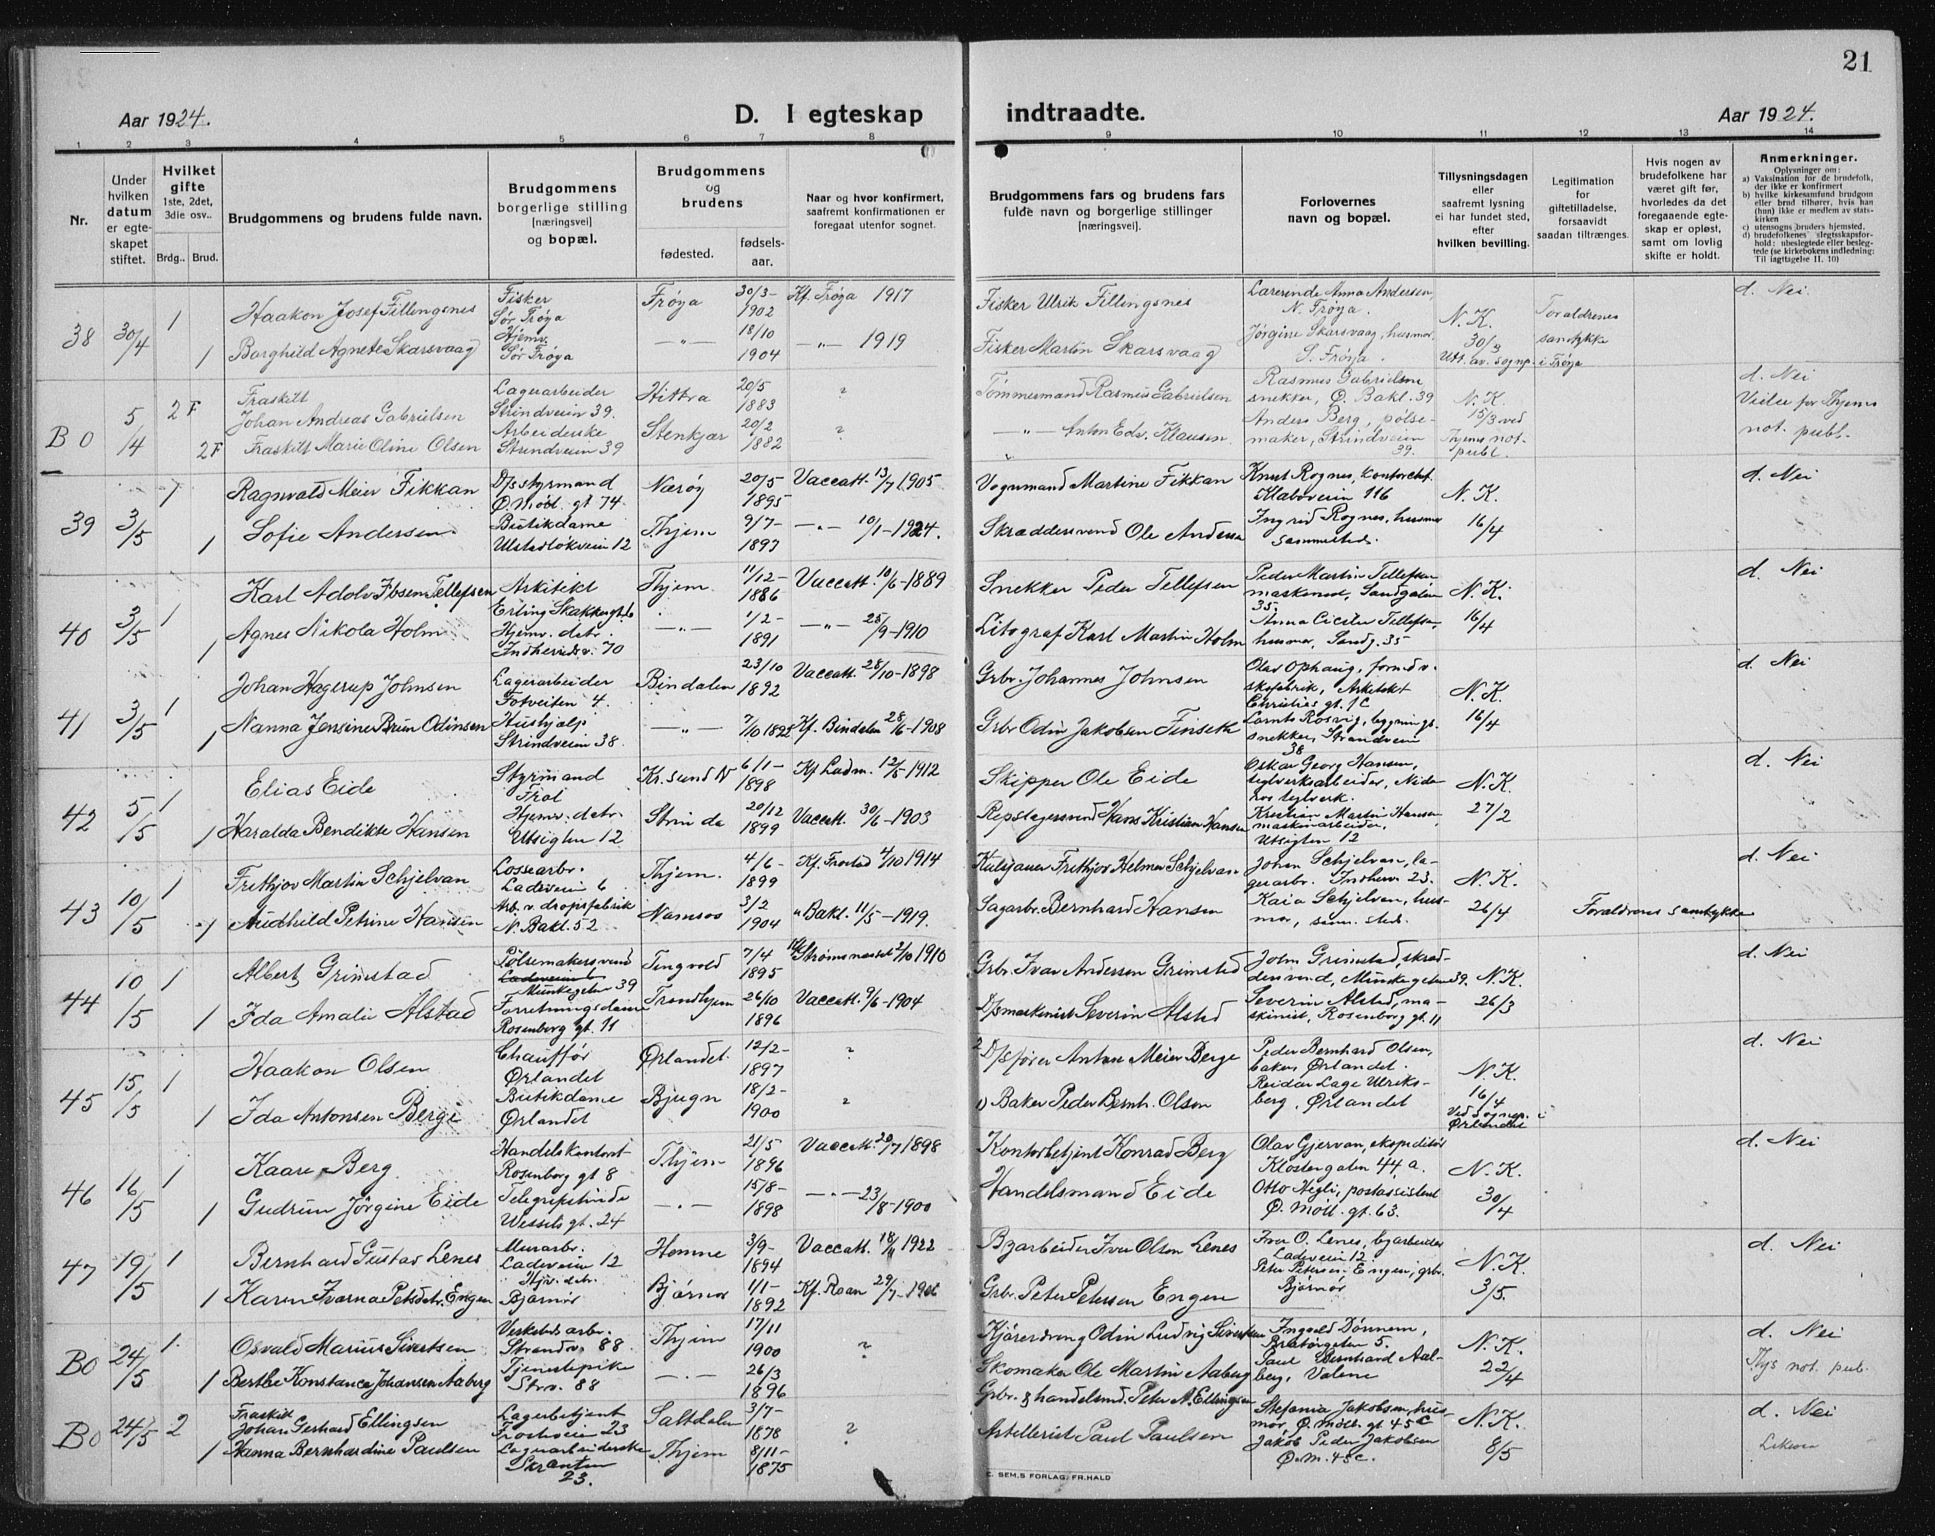 21
Aar 1924.
D. I egteskap
indtraadte.
Aar 1924.
1 2 3 4 5 6 7 8 9 10 11 12 13 14
Nr.
Under hvilken datum er egteskapet stiftet.
Hvilket gifte 1ste, 2det, 3die osv..
Brdg.. Brud.
Brudgommens og brudens fulde navn.
Brudgommens borgerlige stilling [næringsvei] og bopæl.
Brudgommens og brudens
fødested.
fødsels-aar.
Naar og hvor konfirmert, saafremt konfirmationen er foregaat utenfor sognet.
Brudgommens fars og brudens fars fulde navn og borgerlige stillinger [næringsvei].
Forlovernes navn og bopæl.
Tillysningsdagen eller saafremt lysning ei har fundet sted, efter hvilken bevilling.
Legitimation for giftetilladelse, forsaavidt saadan tiltrænges.
Hvis nogen av brudefolkene har været gift før, hvorledes da det foregaaende egteskap er opløst, samt om lovlig skifte er holdt.
Anmerkninger.
Oplysninger om:
a) Vaksination for de brudefolk, der ikke er konfirmert
b) hvilke kirkesamfund brudgom eller brud tilhører, hvis han (hun) ikke er medlem av statskirken
c) utensogns bruders hjemsted,
d) brudefolkenes slegtsskapsforhold: ubeslegtede eller beslegtede (se kirkebokens indledning: Til iagttagelse II. 10)
38 30/4 1 Haakon Josef Fillingsnes Fisker Sør Frøya Frøya 30/3-1902 Kf. Frøya 1917 Fisker Ulrik Fillingsnes Lærerinde Anna Andersen, N. Frøya. N. K. 30/3 Utt. av sognp. i Frøya Foraldrenes samtykke d. Nei
1 Borghild Agnete Skarsvaag Hjemv. Sør Frøya -"- 18/10 1904 -"- 1919 Fisker Martin Skarsvaag Jørgine Skarsvaag, husmor, S. Frøya.
B0 5/4 2F Fraskilt Johan Andreas Gabrielsen Lagerarbeider Strindveien 39. Hittra 20/5 1883 ? Tømmermand Rasmus Gabrielsen Rasmus Gabrielsen snekker, Ø. Bakl. 39 N. K. 15/3 ved Thjems not. publ. d. Nei
2F Fraskilt Marie Oline Olsen Arbeiderske Strindveien 39 Stenkjær 20/2 1882 ? -"- Anton Edv. Klausen Anders Berg, pølsemaker, Strindveien 39. Viélse for Thjems not. publ.
39 3/5 1 Ragnvald Meier Fikkan D/s styrmand Ø. Møll. gt 74. Nærøy 20/5 1895 Vaccatt. 13/7 1905 Vognmand Martine Fikkan Knut Rognes, kontorchef Klæboveien 116 N. K. 16/4 d. Nei
1 Sofie Andersen. Butikdame Ulstadløkveien 12 Thjem 9/7-1897 -"- 10/1-1924. Skræddersvend Ole Andersen Ingrid Rognes, husmor sammesteds.
40 3/5 1 Karl Adolv Ibsen Tellefsen Arkitekt Erling Skakkesgt. 6 Thjem 11/12-1886 Vaccatt. 10/6-1889 Snekker Peder Tellefsen Peder Martin Tellefsen maskinist, Sandgaten 35. N. K. 16/4 d. Nei
1 Agnes Nikola Holm Hjemv. datr. Indherredsv. 70 -"- 1/2-1891 -"- 25/9-1910 Litograf Karl Martin Holm Anna Cicilia Tellefsen, husmor, Sandg. 35
41 3/5 1 Johan Hagerup Johnsen Lagerarbeider Fotveiten 4. Bindalen 23/10 1892 Vaccatt. 28/10-1898 Grbr. Johannes Johnsen Olav Ophaug, formd v. skofabrik, Arkitekt Christies gt. 1c N. K. 16/4 d. Nei
1 Nanna Jensine Brun Odinsen Hushjælp Strindveien 38. -"- 7/10 1892 Kf. Bindalen 28/6-1908 Grbr Odin Jakobsen Finseth Lornts Rosvig, bygningssnekker, Strandveien 38
42 5/5 1 Elias Eide Styrmand Frol Kr.sund N 6/1-1898 Kf Ladm. 12/5-1912 Skipper Ole Eide Oskar Georg Hansen, teglverksarbeider, Nidaros teglverk. N. K. 27/2 d. Nei
1 Haralda Bendikte Hansen Hjemv. datr. Utsigten 12 Strinda 20/12 1899 Vaccatt. 30/6-1903 Repslagersvend Hans Kristian Hansen Kristian Martin Hansen maskinarbeider, Utsigten 12
43 10/5 1 Frithjov Martin Schjelvan Lossearbr. Ladeveien 6 Thjem. 4/6-1899 Kf. Frostad 4/10 1914 Kulsjauer Frithjov Helmer Schjelvan Johan Schjelvan, lagerarbr. Indherv. 23. N. K. 26/4 d. Nei
1 Audhild Petrine Hansen Arb. v. dropsfabrik N. Bakl. 52 Namsos 3/2 1904 " Bakl. 11/5-1919. Sagarbr. Bernhard Hansen Kaia Schjelvan, husmor, sam. sted. Foraldrenes samtykke
44 10/5 1 Albert Grimstad Pølsemakersvend Munkegaten 39 Tingvold 7/4 1895 Kf Strømsneset 2/10 1910 Grbr. Ivar Andersen Grimstad John Grimstad, skræddersvend, Munkegaten 39. N. K. 26/3 d. Nei
1 Ida Amalie Alstad Forretningsdame Rosenborg gt. 11 Trondhjem 26/10 1896 Vaccatt. 9/6-1904 D/s maskinist Severin Alstad Severin Alstad, maskinist, Rosenborg gt. 11
45 15/5 1 Haakon Olsen Chauffør Ørlandet Ørlandet. 12/2-1897 ? 2) D/s fører Anton Meier Berge Peder Bernhard Olsen, baker, Ørlandet. N. K. 16/4 Ved sognep. i Ørlandet d. Nei
1 Ida Antonsen Berge Butikdame Ørlandet Bjugn 18/2-1900 ? 1) Baker Peder Bernh. Olsen Reidar Lage Ulriksberg, Ørlandet
46 16/5 1 Kaare Berg. Handelskontorist Rosenborg gt 8 Thjem 21/5 1896 Vaccatt. 20/7 1898 Kontorbetjent Konrad Berg Olav Gjervan, ekspeditør Klostergaten 44, a. N. K. 30/4 d. Nei
1 Gudrun Jørgine Eide Telegrafistinde Wessels gt. 24 -"- 15/8-1898 -"- 23/8-1900 Handelsmand Eide Otto Hegli, postassistent Ø. Møll. gt. 63.
47 19/5 1 Bernhard Gustav Lenes Murarbr. Ladeveien 12 Hemne 3/9-1894 Vaccatt. 18/4 1922 Byarbeider Iver Olsen Lenes Iver O. Lenes, byarbeider Ladeveien 12 N. K. 3/5. d. Nei
1 Karen Ivarna Petsdtr. Engen Hjv. datr. Bjørnør Bjørnør 1/1-1892 Kf. Roan 29/7-1906 Grbr. Peter Petersen Engen Peter Petersen Engen, grbr. Bjørnør
B0 24/5 1. Osvald Marius Sivertsen Verkstedsarbr. Strandv. 88 Thjem 17/11 1900 ? Kjøredreng Odin Ludvig Sivertsen Ingvald Dønnem, Bratørgaten 5. N. K. 22/4 d. Nei
1 Berthe Konstance Johansen Aaberg Tjenestepike Strv. 88 -"- 26/3 1896 Skomaker Ole Martin Aaberg Paul Bernhard Aalberg, Valene Thjs not. pub.
B0 24/5 2 Fraskilt Johan Gerhard Ellingsen Lagerbetjent Frostveien 23 Saltdalen 3/7-1878 ? Grbr. & handelsmd. Peter A. Ellingsen Stefania Jakobsen, husmor, Ø. Møll. gt 45c N. K. 8/5 d. Nei
1 Hanna Bernhardine Paulsen Lagerarbeiderske Skranten 23. Thjem 8/11-1875 Artellerist Paul Paulsen Jakob Peder Jakobsen Ø. M. 45c.
C. SEM,S FORLAG, FR.HALD